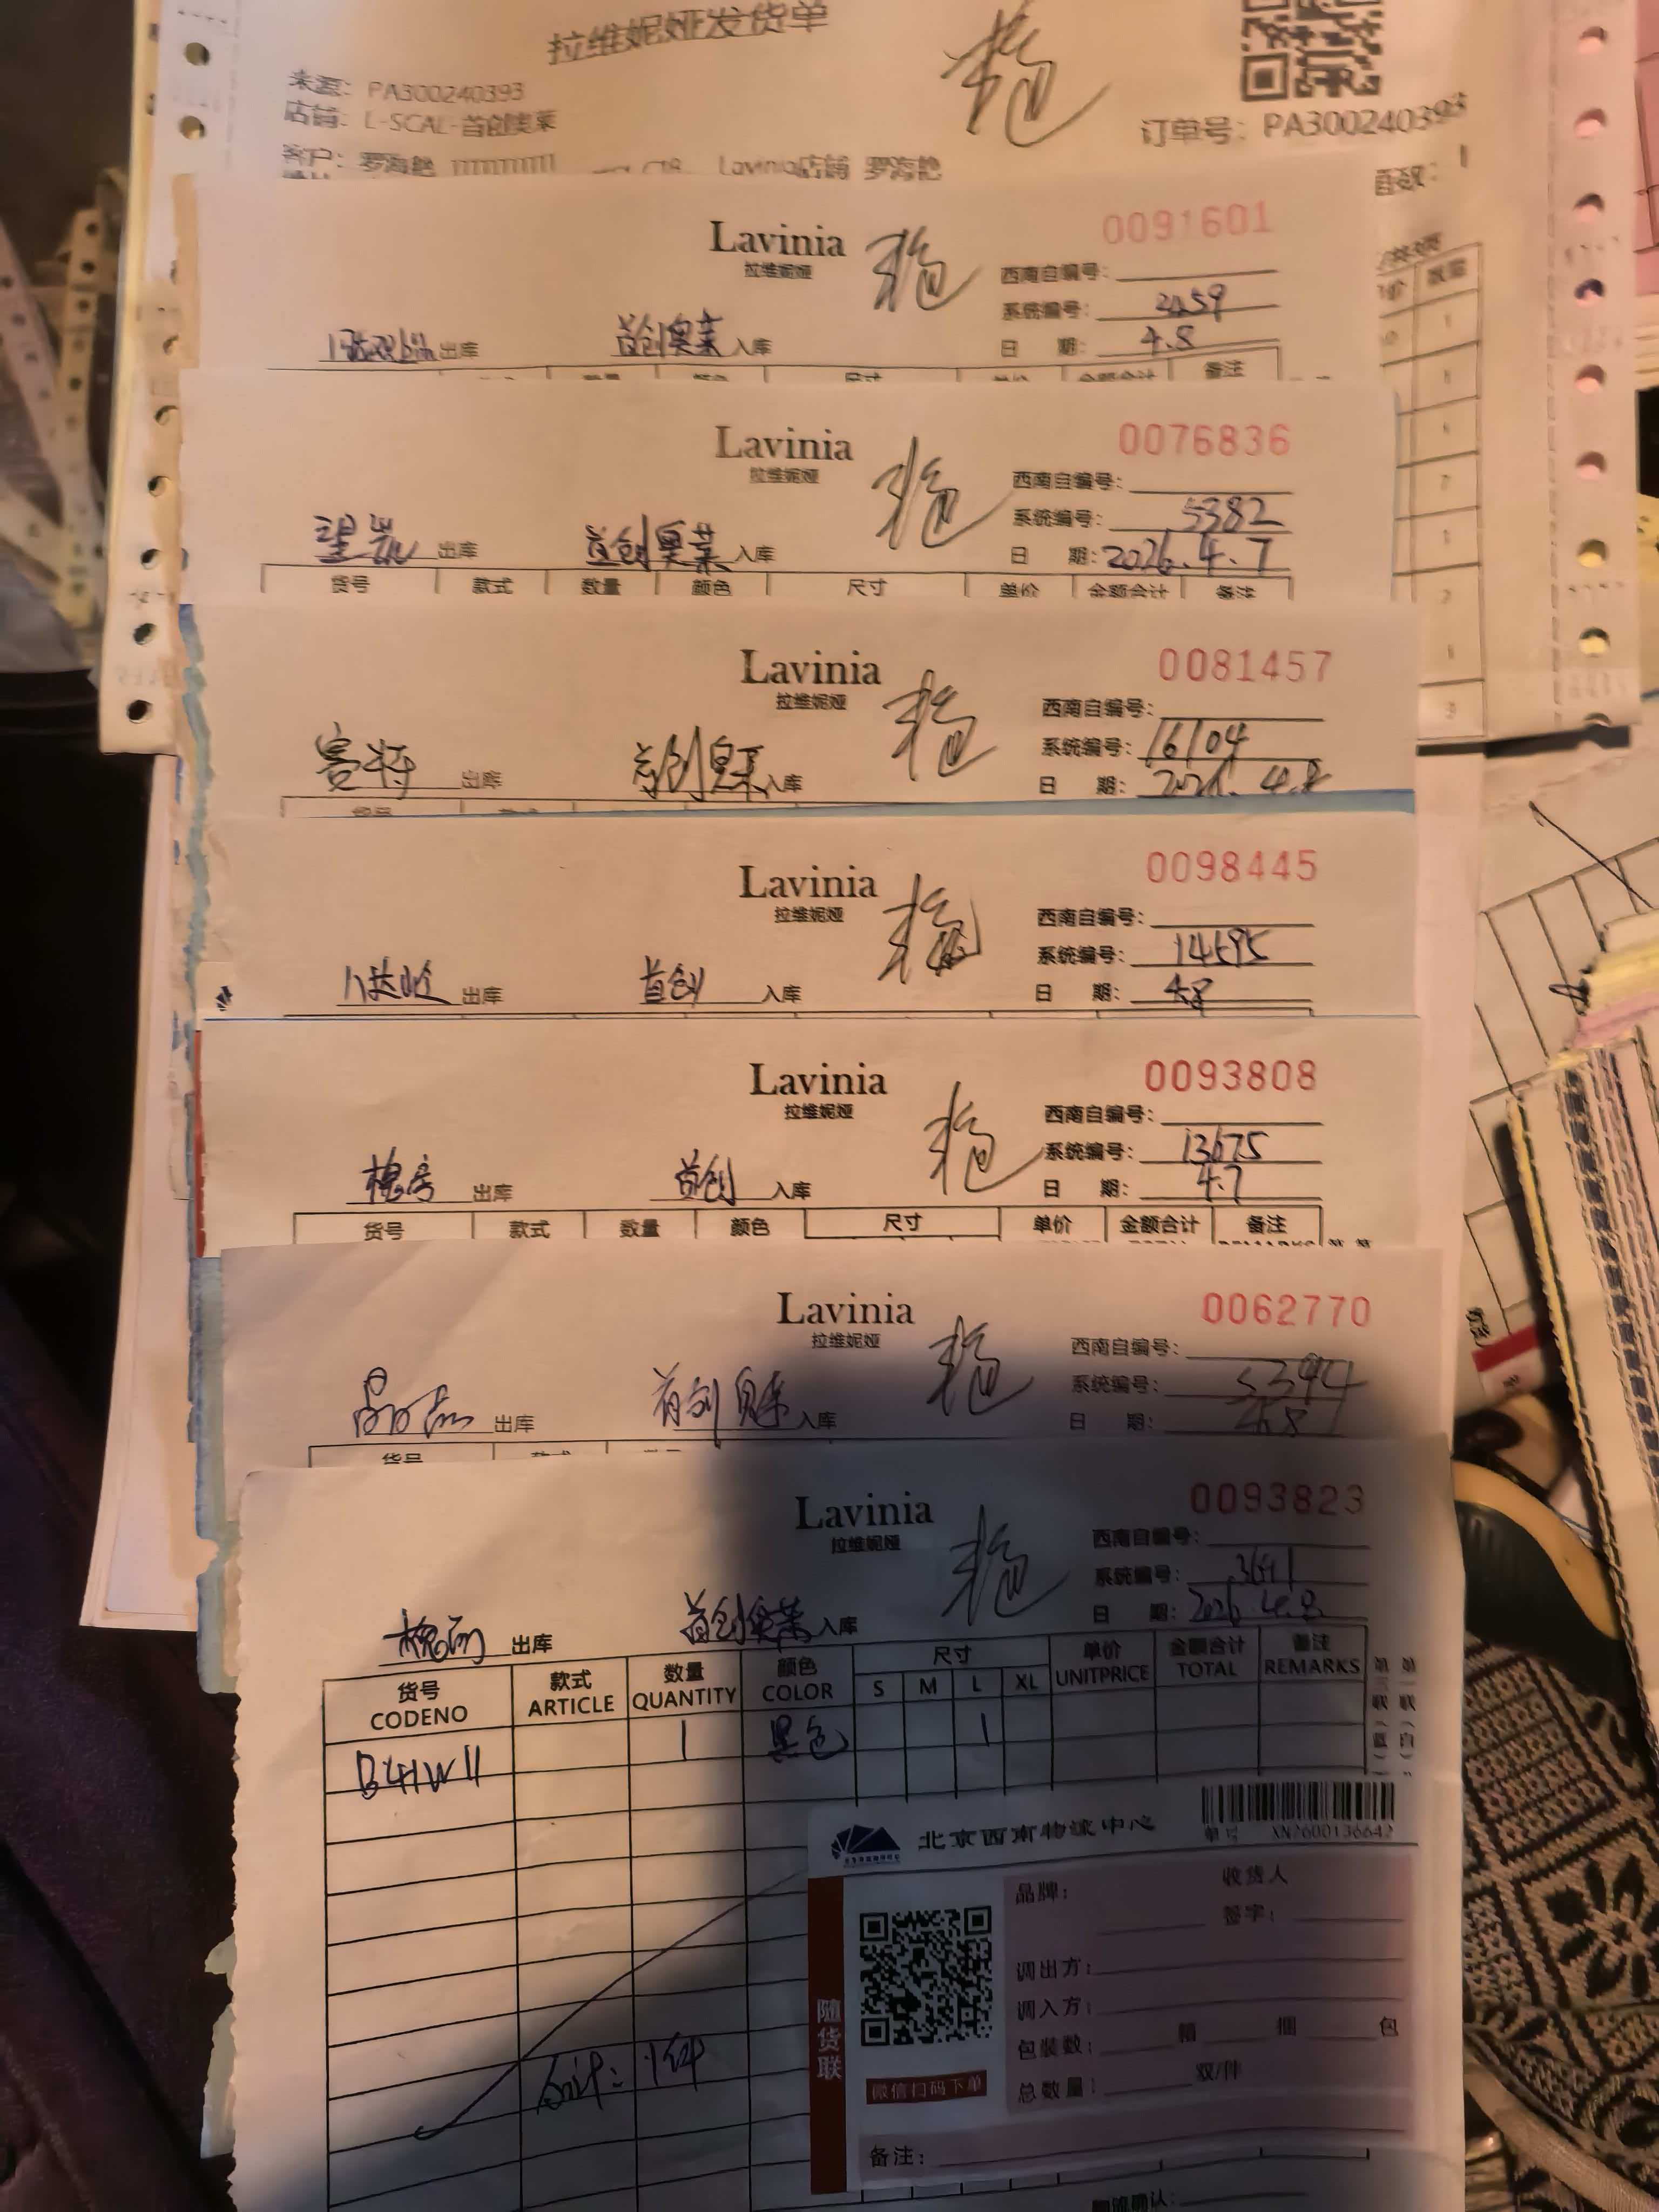 拉维妮娅发货单
来源: PA300240393
店铺: L-SCAL-首创奥莱
订单号: PA300240393
客户: 罗海艳 Lavinia店铺 罗海艳
页数: 1
数量
Lavinia
拉维妮娅
0091601
西南自编号:
系统编号: 2459
出库 首创奥莱 入库
日 期: 4.8
数量 颜色 尺寸 单价 金额合计 备注
Lavinia
拉维妮娅
0076836
西南自编号:
系统编号: 5382
望京 出库 首创奥莱 入库
日 期: 2026.4.7
货号 款式 数量 颜色 尺寸 单价 金额合计 备注
Lavinia
拉维妮娅
0081457
西南自编号:
系统编号: 16104
赛特 出库 首创奥莱 入库
日 期: 2026.4.8
货号 款式
Lavinia
拉维妮娅
0098445
西南自编号:
系统编号: 14595
八达岭 出库 首创 入库
日 期: 4.8
Lavinia
拉维妮娅
0093808
西南自编号:
系统编号: 13675
槐房 出库 首创 入库
日 期: 4.7
货号 款式 数量 颜色 尺寸 单价 金额合计 备注
Lavinia
拉维妮娅
0062770
西南自编号:
系统编号: 5394
出库 首创奥莱 入库
日 期: 4.8
货号 款式
Lavinia
拉维妮娅
0093823
西南自编号:
系统编号: 3641
槐房 出库 首创奥莱 入库
日 期: 2026.4.8
货号 款式 数量 颜色 尺寸 单价 金额合计 备注
CODENO ARTICLE QUANTITY COLOR S M L XL UNITPRICE TOTAL REMARKS
B41W11 1 黑色 1
合计: 1件
北京西南物流中心
单号 XN2600136642
品牌: 收货人
签字:
调出方:
调入方:
包装数: 箱 捆 包
总数量: 双/件
随货联
微信扫码下单
备注:
物流确认: